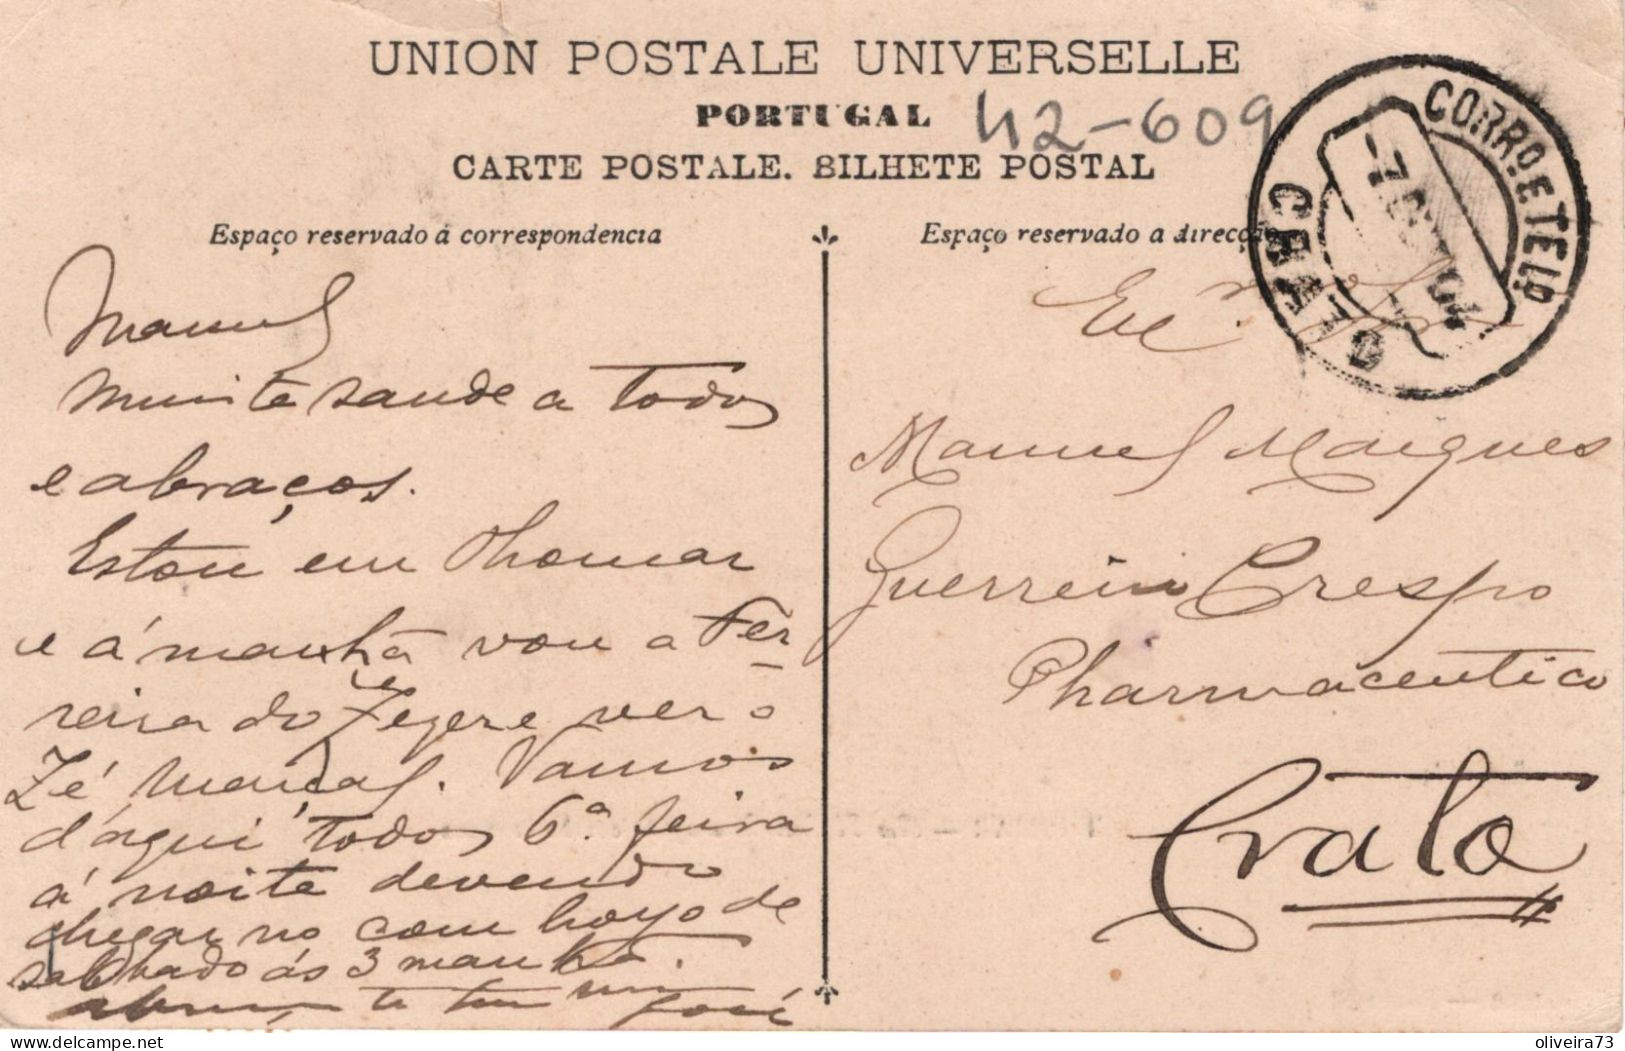 UNION POSTALE UNIVERSELLE
PORTUGAL
42-609
CARTE POSTALE. BILHETE POSTAL
Espaço reservado á correspondencia
Manuel
Muita saude a todos
e abraços.
Estou em Thomar
e á manhã vou a Fer
reira do Zezere ver o
Zé Marçal. Vamos
d'aqui todos 6.ª feira
á noite devendo
chegar no comboyo de
sabbado ás 3 manhã.
José
Espaço reservado a direcção
CORRO E TELO
CRATO
Manuel Marques
Guerreiro Crespo
Pharmaceutico
Crato
delcampe.net
oliveira73